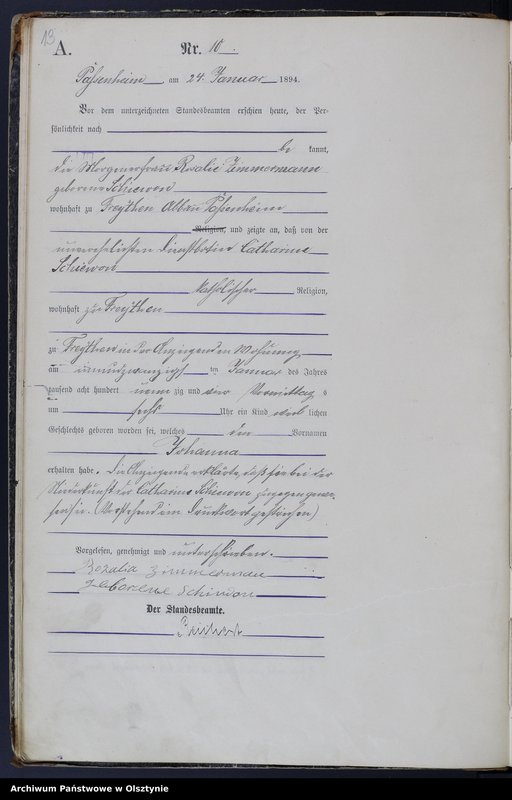 13
A. Nr. 10.
Passenheim am 24. Januar 1894.
Vor dem unterzeichneten Standesbeamten erschien heute, der Per-
sönlichkeit nach
be kannt,
die Rosalie Zimmermann
geborene Schiewon
wohnhaft zu Freythen Abbau Passenheim
Religion, und zeigte an, daß von der
unverehelichten Dienstbotin Catharine
Schiewon
katholischer Religion,
wohnhaft zu Freythen
zu Freythen in der Anzeigenden Wohnung
am einundzwanzigsten ten Januar des Jahres
tausend acht hundert neun zig und vier Vormittag s
um sechs Uhr ein Kind weib lichen
Geschlechts geboren worden sei, welches den Vornamen
Johanna
erhalten habe. Die Anzeigende erklärte, daß sie bei der
Niederkunft der Catharine Schiewon zugegen gewe-
sen sei. (Vorstehend ein Druckwort gestrichen)
Vorgelesen, genehmigt und unterschrieben.
Rozalia Zimmerman
geborene Schiwon
Der Standesbeamte.
Archiwum Państwowe w Olsztynie